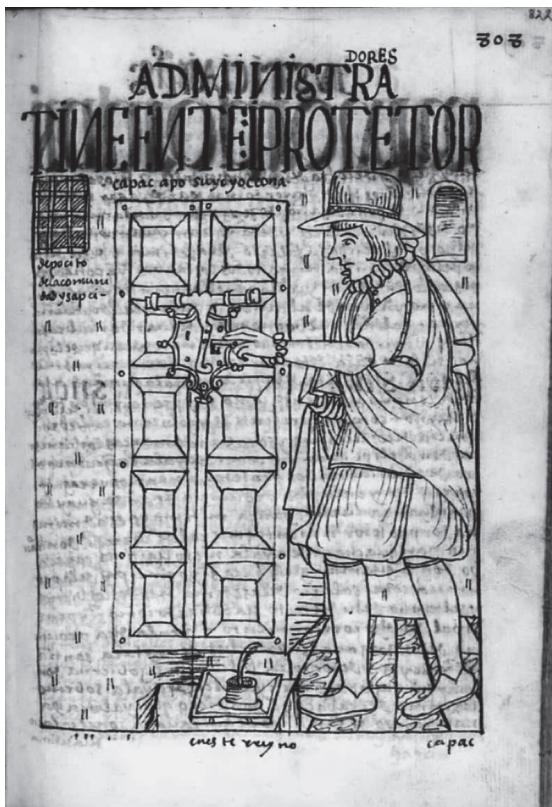 822
808
DORES
ADMINISTRA
TINEENTEIPROTETOR
capac apo suyoyoccona
depocito
dela comuni
dad y sapci-
en es te rreyno
capac